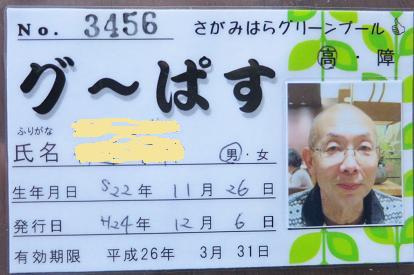 No. 3456 さがみはらグリーンプール
高・障
グ～ぱす
ふりがな
氏名
男・女
生年月日 S22年 11月 26日
発行日 H24年 12月 6日
有効期限 平成26年 3月 31日